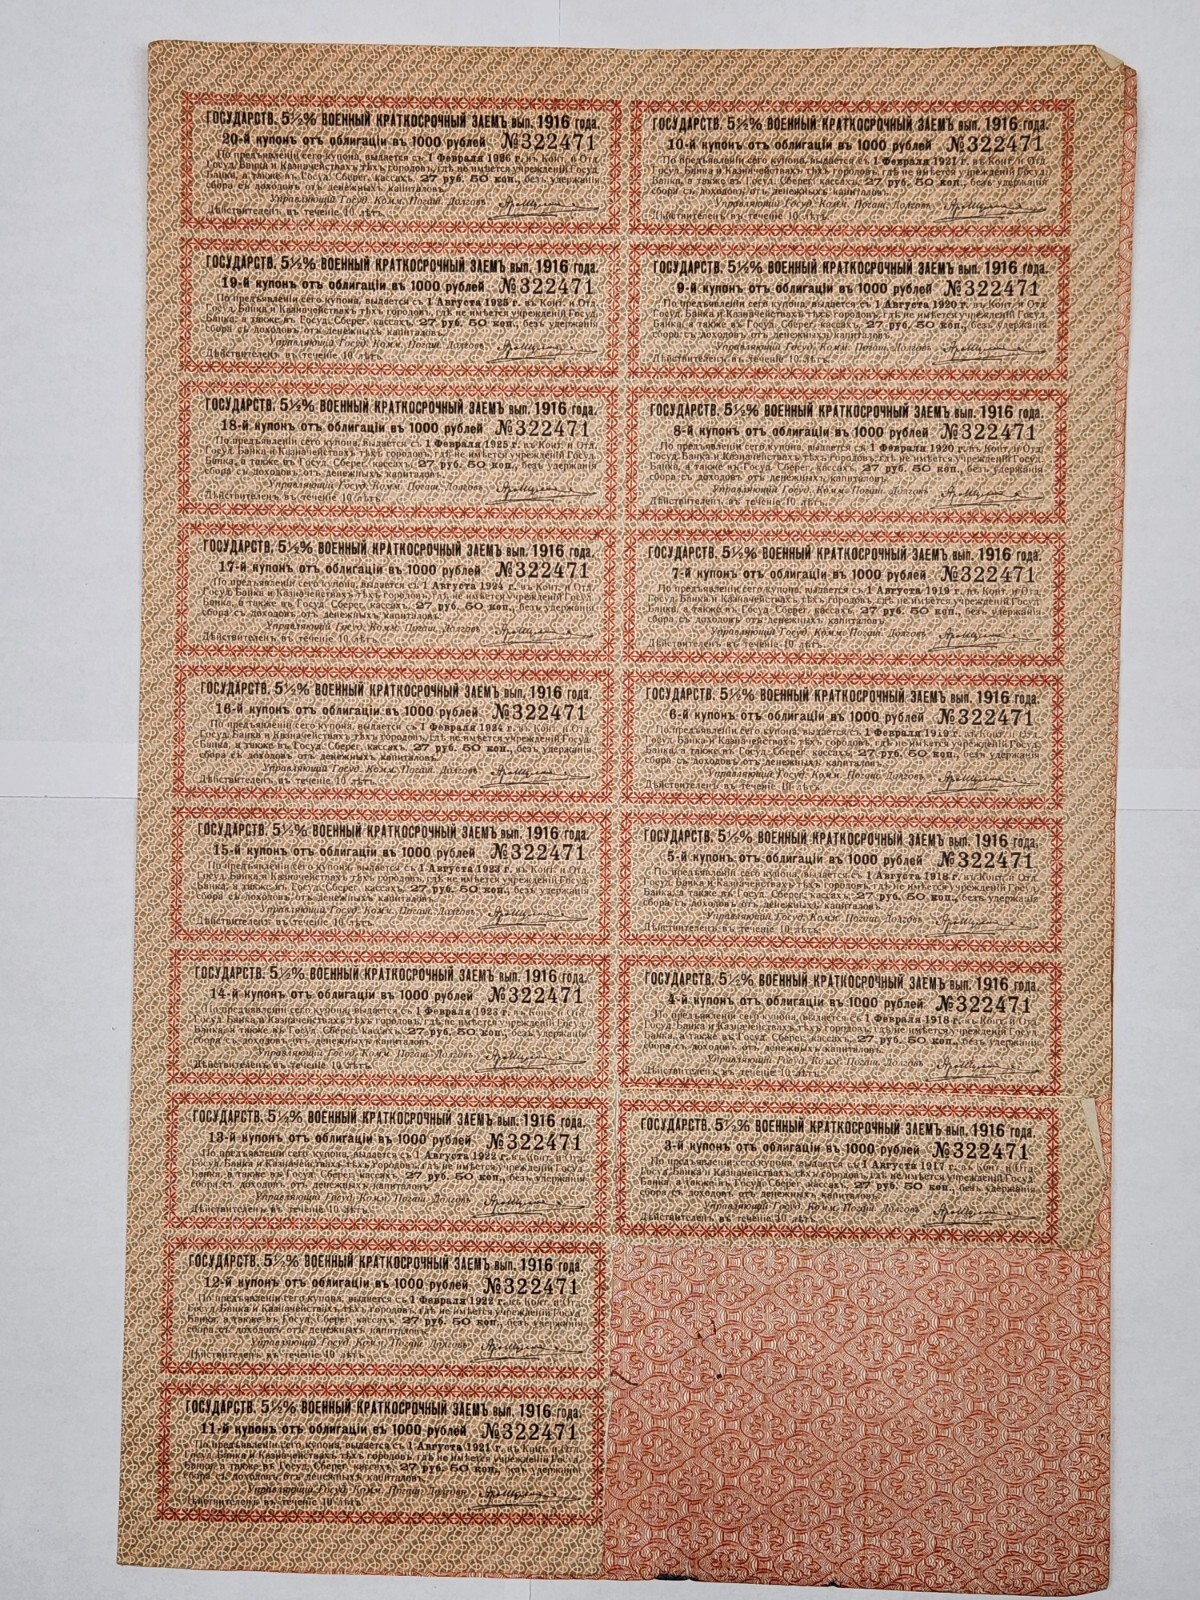 ГОСУДАРСТВ. 5½% ВОЕННЫЙ КРАТКОСРОЧНЫЙ ЗАЕМЪ вып. 1916 года.
20-й купонъ отъ облигаціи въ 1000 рублей №322471
По предъявленіи сего купона, выдается съ 1 Февраля 1926 г. въ Конт. и Отд.
Госуд. Банка и Казначействахъ тѣхъ городовъ, гдѣ не имѣется учрежденій Госуд.
Банка, а также въ Госуд. Сберег. кассахъ, 27 руб. 50 коп., безъ удержанія
сбора съ доходовъ отъ денежныхъ капиталовъ.
Управляющій Госуд. Комм. Погаш. Долговъ
Дѣйствителенъ въ теченіе 10 лѣтъ.
ГОСУДАРСТВ. 5½% ВОЕННЫЙ КРАТКОСРОЧНЫЙ ЗАЕМЪ вып. 1916 года.
19-й купонъ отъ облигаціи въ 1000 рублей №322471
По предъявленіи сего купона, выдается съ 1 Августа 1925 г. въ Конт. и Отд.
Госуд. Банка и Казначействахъ тѣхъ городовъ, гдѣ не имѣется учрежденій Госуд.
Банка, а также въ Госуд. Сберег. кассахъ, 27 руб. 50 коп., безъ удержанія
сбора съ доходовъ отъ денежныхъ капиталовъ.
Управляющій Госуд. Комм. Погаш. Долговъ
Дѣйствителенъ въ теченіе 10 лѣтъ.
ГОСУДАРСТВ. 5½% ВОЕННЫЙ КРАТКОСРОЧНЫЙ ЗАЕМЪ вып. 1916 года.
18-й купонъ отъ облигаціи въ 1000 рублей №322471
По предъявленіи сего купона, выдается съ 1 Февраля 1925 г. въ Конт. и Отд.
Госуд. Банка и Казначействахъ тѣхъ городовъ, гдѣ не имѣется учрежденій Госуд.
Банка, а также въ Госуд. Сберег. кассахъ, 27 руб. 50 коп., безъ удержанія
сбора съ доходовъ отъ денежныхъ капиталовъ.
Управляющій Госуд. Комм. Погаш. Долговъ
Дѣйствителенъ въ теченіе 10 лѣтъ.
ГОСУДАРСТВ. 5½% ВОЕННЫЙ КРАТКОСРОЧНЫЙ ЗАЕМЪ вып. 1916 года.
17-й купонъ отъ облигаціи въ 1000 рублей №322471
По предъявленіи сего купона, выдается съ 1 Августа 1924 г. въ Конт. и Отд.
Госуд. Банка и Казначействахъ тѣхъ городовъ, гдѣ не имѣется учрежденій Госуд.
Банка, а также въ Госуд. Сберег. кассахъ, 27 руб. 50 коп., безъ удержанія
сбора съ доходовъ отъ денежныхъ капиталовъ.
Управляющій Госуд. Комм. Погаш. Долговъ
Дѣйствителенъ въ теченіе 10 лѣтъ.
ГОСУДАРСТВ. 5½% ВОЕННЫЙ КРАТКОСРОЧНЫЙ ЗАЕМЪ вып. 1916 года.
16-й купонъ отъ облигаціи въ 1000 рублей №322471
По предъявленіи сего купона, выдается съ 1 Февраля 1924 г. въ Конт. и Отд.
Госуд. Банка и Казначействахъ тѣхъ городовъ, гдѣ не имѣется учрежденій Госуд.
Банка, а также въ Госуд. Сберег. кассахъ, 27 руб. 50 коп., безъ удержанія
сбора съ доходовъ отъ денежныхъ капиталовъ.
Управляющій Госуд. Комм. Погаш. Долговъ
Дѣйствителенъ въ теченіе 10 лѣтъ.
ГОСУДАРСТВ. 5½% ВОЕННЫЙ КРАТКОСРОЧНЫЙ ЗАЕМЪ вып. 1916 года.
15-й купонъ отъ облигаціи въ 1000 рублей №322471
По предъявленіи сего купона, выдается съ 1 Августа 1923 г. въ Конт. и Отд.
Госуд. Банка и Казначействахъ тѣхъ городовъ, гдѣ не имѣется учрежденій Госуд.
Банка, а также въ Госуд. Сберег. кассахъ, 27 руб. 50 коп., безъ удержанія
сбора съ доходовъ отъ денежныхъ капиталовъ.
Управляющій Госуд. Комм. Погаш. Долговъ
Дѣйствителенъ въ теченіе 10 лѣтъ.
ГОСУДАРСТВ. 5½% ВОЕННЫЙ КРАТКОСРОЧНЫЙ ЗАЕМЪ вып. 1916 года.
14-й купонъ отъ облигаціи въ 1000 рублей №322471
По предъявленіи сего купона, выдается съ 1 Февраля 1923 г. въ Конт. и Отд.
Госуд. Банка и Казначействахъ тѣхъ городовъ, гдѣ не имѣется учрежденій Госуд.
Банка, а также въ Госуд. Сберег. кассахъ, 27 руб. 50 коп., безъ удержанія
сбора съ доходовъ отъ денежныхъ капиталовъ.
Управляющій Госуд. Комм. Погаш. Долговъ
Дѣйствителенъ въ теченіе 10 лѣтъ.
ГОСУДАРСТВ. 5½% ВОЕННЫЙ КРАТКОСРОЧНЫЙ ЗАЕМЪ вып. 1916 года.
13-й купонъ отъ облигаціи въ 1000 рублей №322471
По предъявленіи сего купона, выдается съ 1 Августа 1922 г. въ Конт. и Отд.
Госуд. Банка и Казначействахъ тѣхъ городовъ, гдѣ не имѣется учрежденій Госуд.
Банка, а также въ Госуд. Сберег. кассахъ, 27 руб. 50 коп., безъ удержанія
сбора съ доходовъ отъ денежныхъ капиталовъ.
Управляющій Госуд. Комм. Погаш. Долговъ
Дѣйствителенъ въ теченіе 10 лѣтъ.
ГОСУДАРСТВ. 5½% ВОЕННЫЙ КРАТКОСРОЧНЫЙ ЗАЕМЪ вып. 1916 года.
12-й купонъ отъ облигаціи въ 1000 рублей №322471
По предъявленіи сего купона, выдается съ 1 Февраля 1922 г. въ Конт. и Отд.
Госуд. Банка и Казначействахъ тѣхъ городовъ, гдѣ не имѣется учрежденій Госуд.
Банка, а также въ Госуд. Сберег. кассахъ, 27 руб. 50 коп., безъ удержанія
сбора съ доходовъ отъ денежныхъ капиталовъ.
Управляющій Госуд. Комм. Погаш. Долговъ
Дѣйствителенъ въ теченіе 10 лѣтъ.
ГОСУДАРСТВ. 5½% ВОЕННЫЙ КРАТКОСРОЧНЫЙ ЗАЕМЪ вып. 1916 года.
11-й купонъ отъ облигаціи въ 1000 рублей №322471
По предъявленіи сего купона, выдается съ 1 Августа 1921 г. въ Конт. и Отд.
Госуд. Банка и Казначействахъ тѣхъ городовъ, гдѣ не имѣется учрежденій Госуд.
Банка, а также въ Госуд. Сберег. кассахъ, 27 руб. 50 коп., безъ удержанія
сбора съ доходовъ отъ денежныхъ капиталовъ.
Управляющій Госуд. Комм. Погаш. Долговъ
Дѣйствителенъ въ теченіе 10 лѣтъ.
ГОСУДАРСТВ. 5½% ВОЕННЫЙ КРАТКОСРОЧНЫЙ ЗАЕМЪ вып. 1916 года.
10-й купонъ отъ облигаціи въ 1000 рублей №322471
По предъявленіи сего купона, выдается съ 1 Февраля 1921 г. въ Конт. и Отд.
Госуд. Банка и Казначействахъ тѣхъ городовъ, гдѣ не имѣется учрежденій Госуд.
Банка, а также въ Госуд. Сберег. кассахъ, 27 руб. 50 коп., безъ удержанія
сбора съ доходовъ отъ денежныхъ капиталовъ.
Управляющій Госуд. Комм. Погаш. Долговъ
Дѣйствителенъ въ теченіе 10 лѣтъ.
ГОСУДАРСТВ. 5½% ВОЕННЫЙ КРАТКОСРОЧНЫЙ ЗАЕМЪ вып. 1916 года.
9-й купонъ отъ облигаціи въ 1000 рублей №322471
По предъявленіи сего купона, выдается съ 1 Августа 1920 г. въ Конт. и Отд.
Госуд. Банка и Казначействахъ тѣхъ городовъ, гдѣ не имѣется учрежденій Госуд.
Банка, а также въ Госуд. Сберег. кассахъ, 27 руб. 50 коп., безъ удержанія
сбора съ доходовъ отъ денежныхъ капиталовъ.
Управляющій Госуд. Комм. Погаш. Долговъ
Дѣйствителенъ въ теченіе 10 лѣтъ.
ГОСУДАРСТВ. 5½% ВОЕННЫЙ КРАТКОСРОЧНЫЙ ЗАЕМЪ вып. 1916 года.
8-й купонъ отъ облигаціи въ 1000 рублей №322471
По предъявленіи сего купона, выдается съ 1 Февраля 1920 г. въ Конт. и Отд.
Госуд. Банка и Казначействахъ тѣхъ городовъ, гдѣ не имѣется учрежденій Госуд.
Банка, а также въ Госуд. Сберег. кассахъ, 27 руб. 50 коп., безъ удержанія
сбора съ доходовъ отъ денежныхъ капиталовъ.
Управляющій Госуд. Комм. Погаш. Долговъ
Дѣйствителенъ въ теченіе 10 лѣтъ.
ГОСУДАРСТВ. 5½% ВОЕННЫЙ КРАТКОСРОЧНЫЙ ЗАЕМЪ вып. 1916 года.
7-й купонъ отъ облигаціи въ 1000 рублей №322471
По предъявленіи сего купона, выдается съ 1 Августа 1919 г. въ Конт. и Отд.
Госуд. Банка и Казначействахъ тѣхъ городовъ, гдѣ не имѣется учрежденій Госуд.
Банка, а также въ Госуд. Сберег. кассахъ, 27 руб. 50 коп., безъ удержанія
сбора съ доходовъ отъ денежныхъ капиталовъ.
Управляющій Госуд. Комм. Погаш. Долговъ
Дѣйствителенъ въ теченіе 10 лѣтъ.
ГОСУДАРСТВ. 5½% ВОЕННЫЙ КРАТКОСРОЧНЫЙ ЗАЕМЪ вып. 1916 года.
6-й купонъ отъ облигаціи въ 1000 рублей №322471
По предъявленіи сего купона, выдается съ 1 Февраля 1919 г. въ Конт. и Отд.
Госуд. Банка и Казначействахъ тѣхъ городовъ, гдѣ не имѣется учрежденій Госуд.
Банка, а также въ Госуд. Сберег. кассахъ, 27 руб. 50 коп., безъ удержанія
сбора съ доходовъ отъ денежныхъ капиталовъ.
Управляющій Госуд. Комм. Погаш. Долговъ
Дѣйствителенъ въ теченіе 10 лѣтъ.
ГОСУДАРСТВ. 5½% ВОЕННЫЙ КРАТКОСРОЧНЫЙ ЗАЕМЪ вып. 1916 года.
5-й купонъ отъ облигаціи въ 1000 рублей №322471
По предъявленіи сего купона, выдается съ 1 Августа 1918 г. въ Конт. и Отд.
Госуд. Банка и Казначействахъ тѣхъ городовъ, гдѣ не имѣется учрежденій Госуд.
Банка, а также въ Госуд. Сберег. кассахъ, 27 руб. 50 коп., безъ удержанія
сбора съ доходовъ отъ денежныхъ капиталовъ.
Управляющій Госуд. Комм. Погаш. Долговъ
Дѣйствителенъ въ теченіе 10 лѣтъ.
ГОСУДАРСТВ. 5½% ВОЕННЫЙ КРАТКОСРОЧНЫЙ ЗАЕМЪ вып. 1916 года.
4-й купонъ отъ облигаціи въ 1000 рублей №322471
По предъявленіи сего купона, выдается съ 1 Февраля 1918 г. въ Конт. и Отд.
Госуд. Банка и Казначействахъ тѣхъ городовъ, гдѣ не имѣется учрежденій Госуд.
Банка, а также въ Госуд. Сберег. кассахъ, 27 руб. 50 коп., безъ удержанія
сбора съ доходовъ отъ денежныхъ капиталовъ.
Управляющій Госуд. Комм. Погаш. Долговъ
Дѣйствителенъ въ теченіе 10 лѣтъ.
ГОСУДАРСТВ. 5½% ВОЕННЫЙ КРАТКОСРОЧНЫЙ ЗАЕМЪ вып. 1916 года.
3-й купонъ отъ облигаціи въ 1000 рублей №322471
По предъявленіи сего купона, выдается съ 1 Августа 1917 г. въ Конт. и Отд.
Госуд. Банка и Казначействахъ тѣхъ городовъ, гдѣ не имѣется учрежденій Госуд.
Банка, а также въ Госуд. Сберег. кассахъ, 27 руб. 50 коп., безъ удержанія
сбора съ доходовъ отъ денежныхъ капиталовъ.
Управляющій Госуд. Комм. Погаш. Долговъ
Дѣйствителенъ въ теченіе 10 лѣтъ.